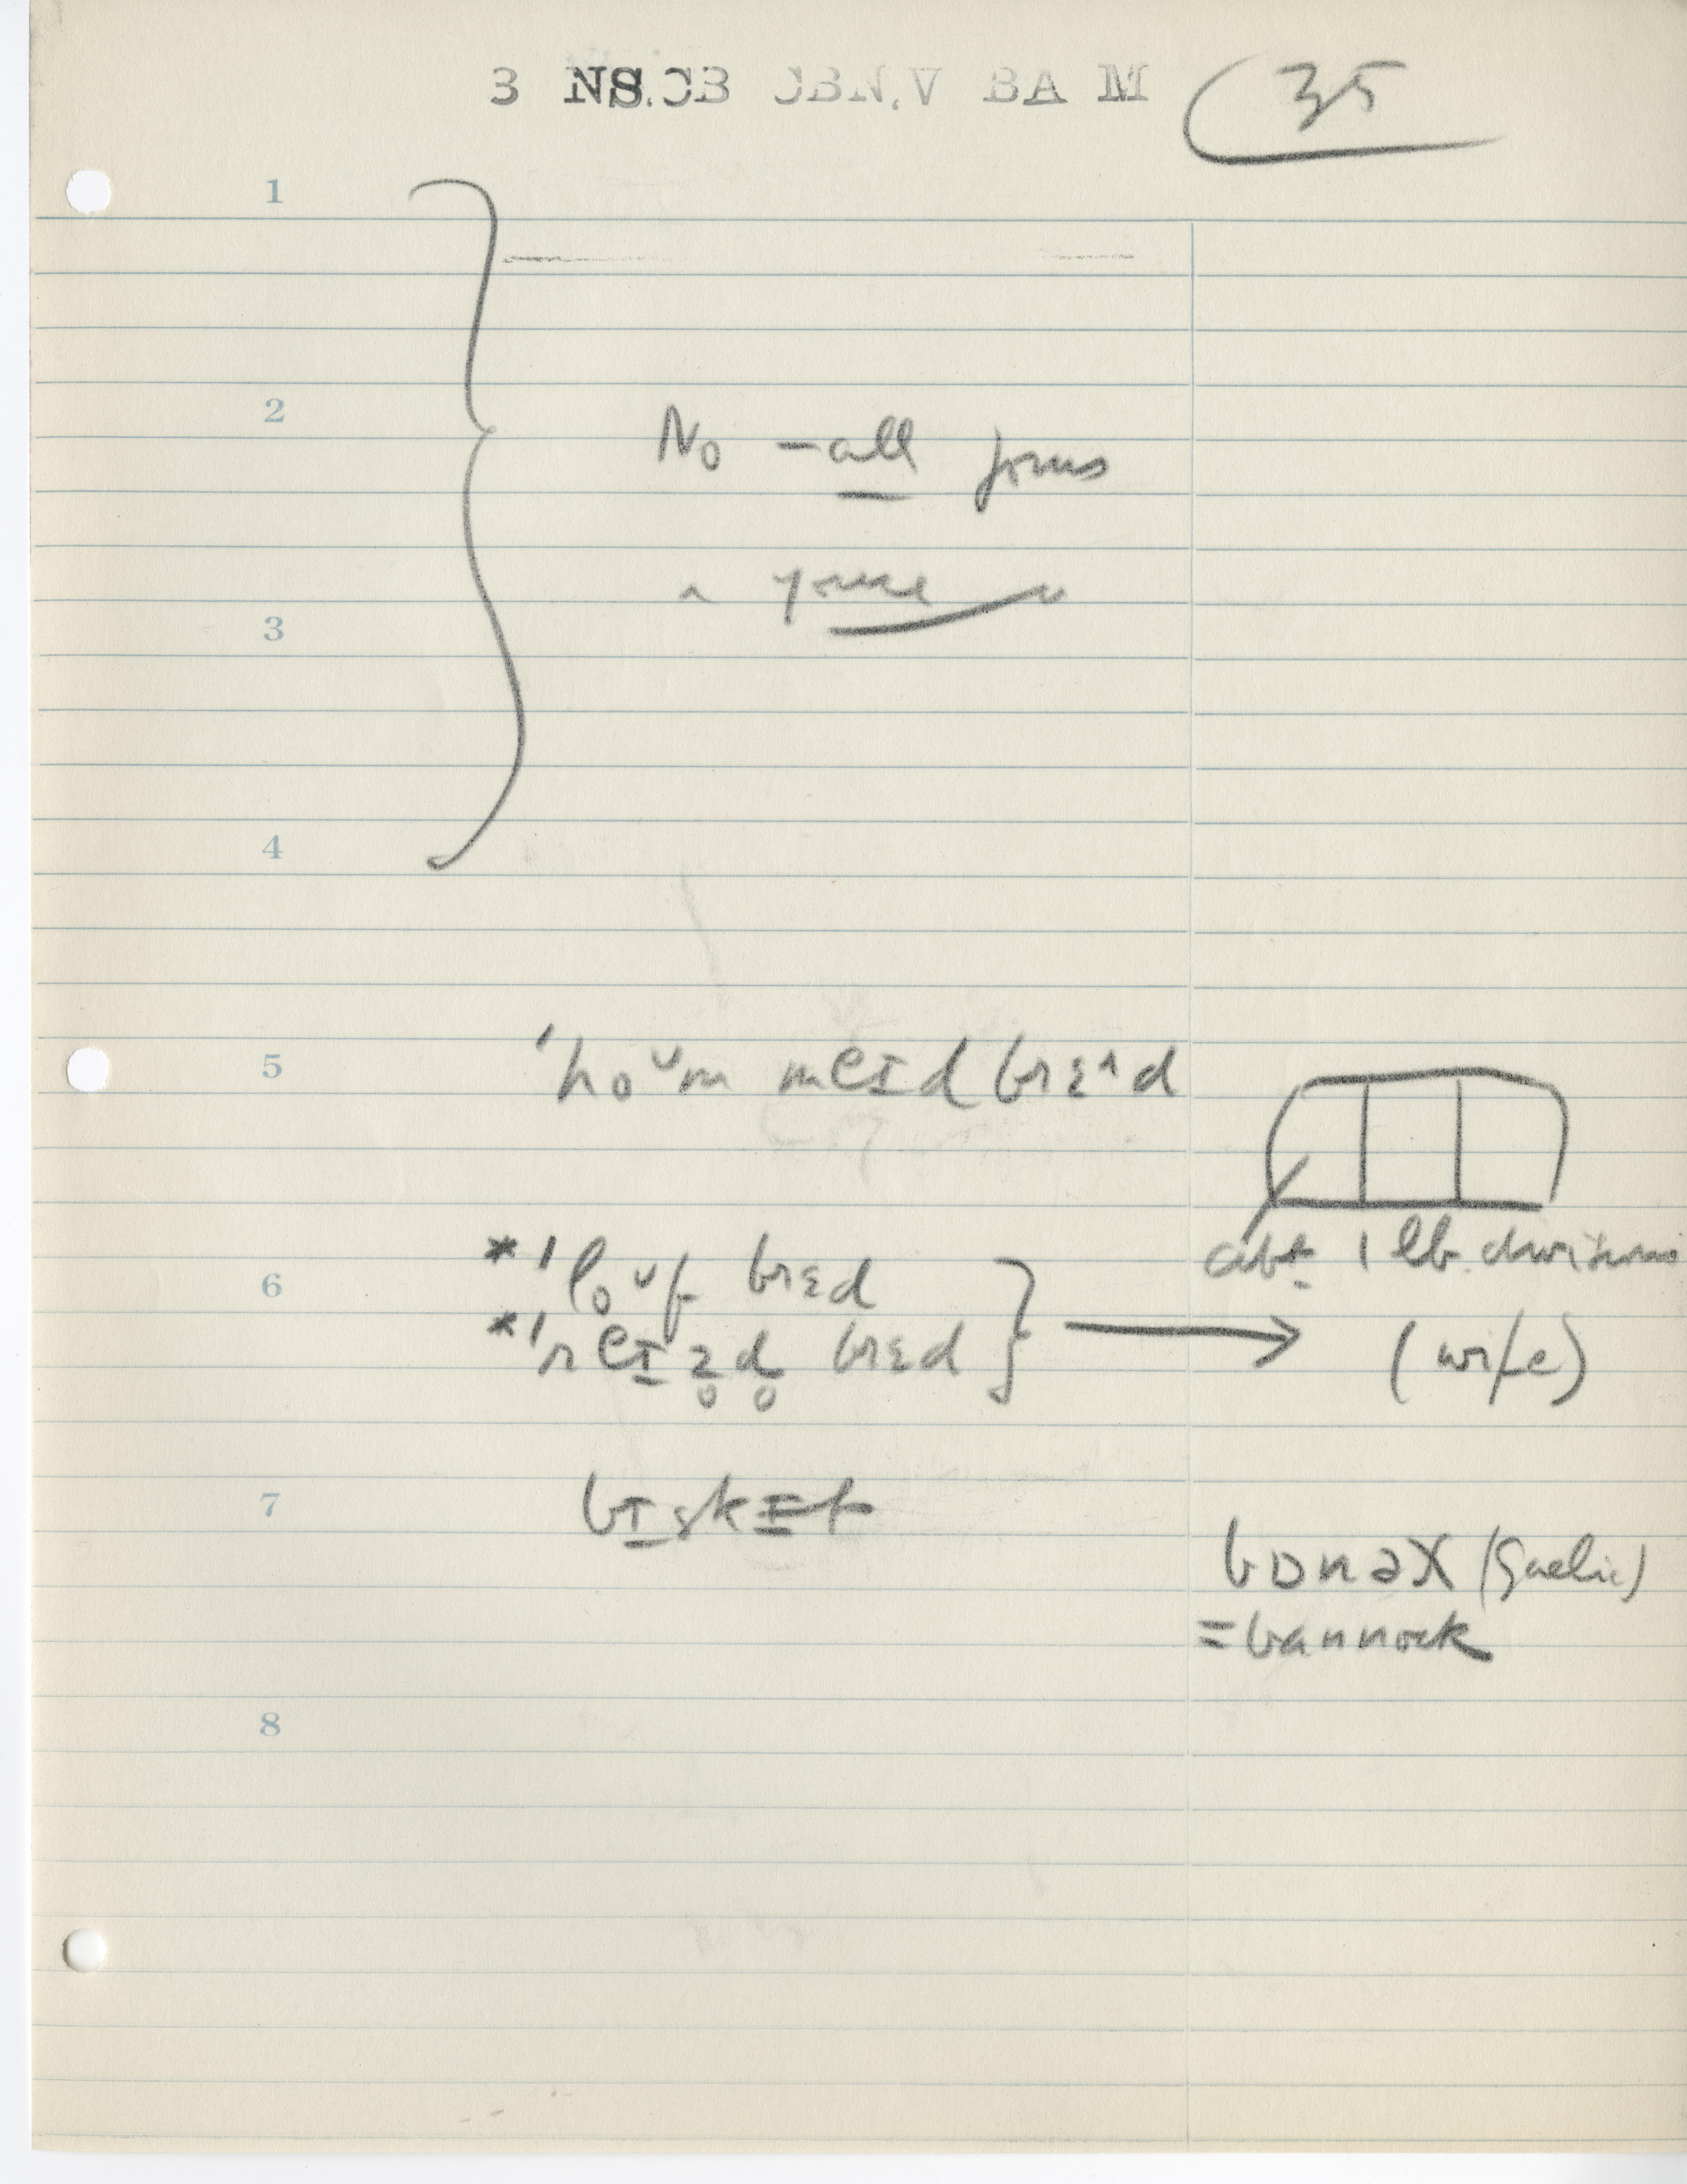 3 NS.CB CBN.V BA M 35
1
2
No -all forms
3
4
5 'hoᵘm meɪd brɛˑᶺd
abt 1 lb. divisions
6 *'loᵘf brɛd
*'reɪz̥d̥ brɛd → (wife)
7 bɪskɪt
bɒnəX (Gaelic)
= bannock
8